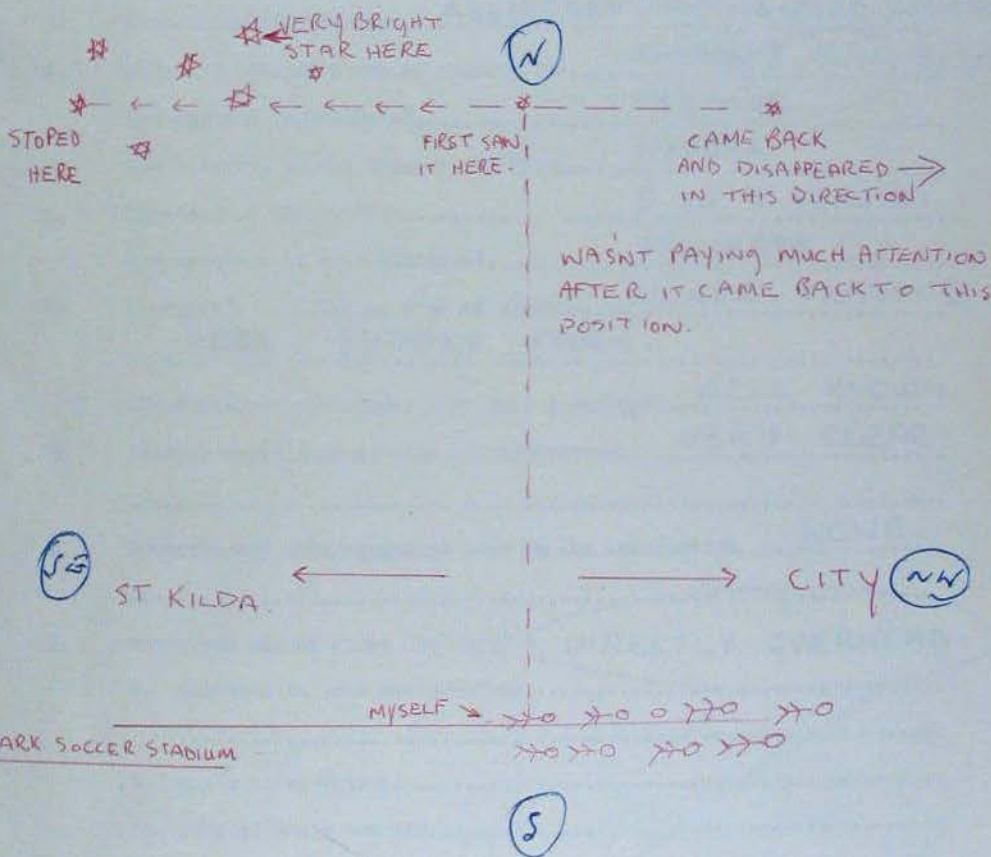 VERY BRIGHT
STAR HERE
N
STOPED
HERE
FIRST SAW
IT HERE.
CAME BACK
AND DISAPPEARED
IN THIS DIRECTION
WASN'T PAYING MUCH ATTENTION
AFTER IT CAME BACK TO THIS
POSITION.
SE
ST KILDA.
CITY
NW
MYSELF
ARK SOCCER STADIUM
S